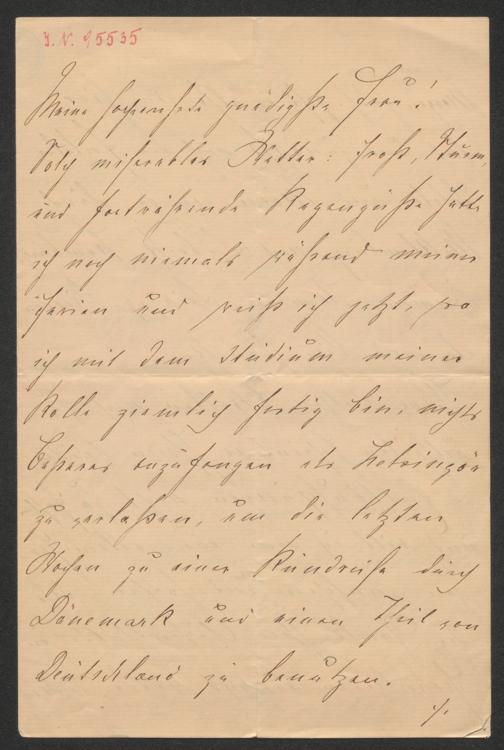 J. N. 95535
Meine hochverehrte gnädigste Frau!
Solch miserables Wetter: Frost, Sturm,
und fortwährende Regengüsse hatte
ich noch niemals während meiner
Ferien und weiß ich jetzt, wo
ich mit dem Studium meiner
Rolle ziemlich fertig bin, nichts
Besseres anzufangen als Helsingör
zu verlassen, um die letzten
Wochen zu einer Rundreise durch
Dänemark und einen Theil von
Deutschland zu benutzen.